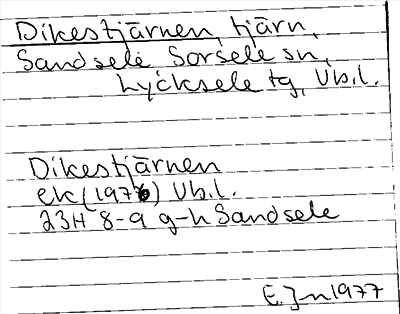 Dikestjärnen, tjärn,
Sandsele Sorsele sn,
Lycksele tg, Vb.l.
Dikestjärnen
ek (1976) Vb.l.
23H 8-9 g-h Sandsele
E. J-n 1977